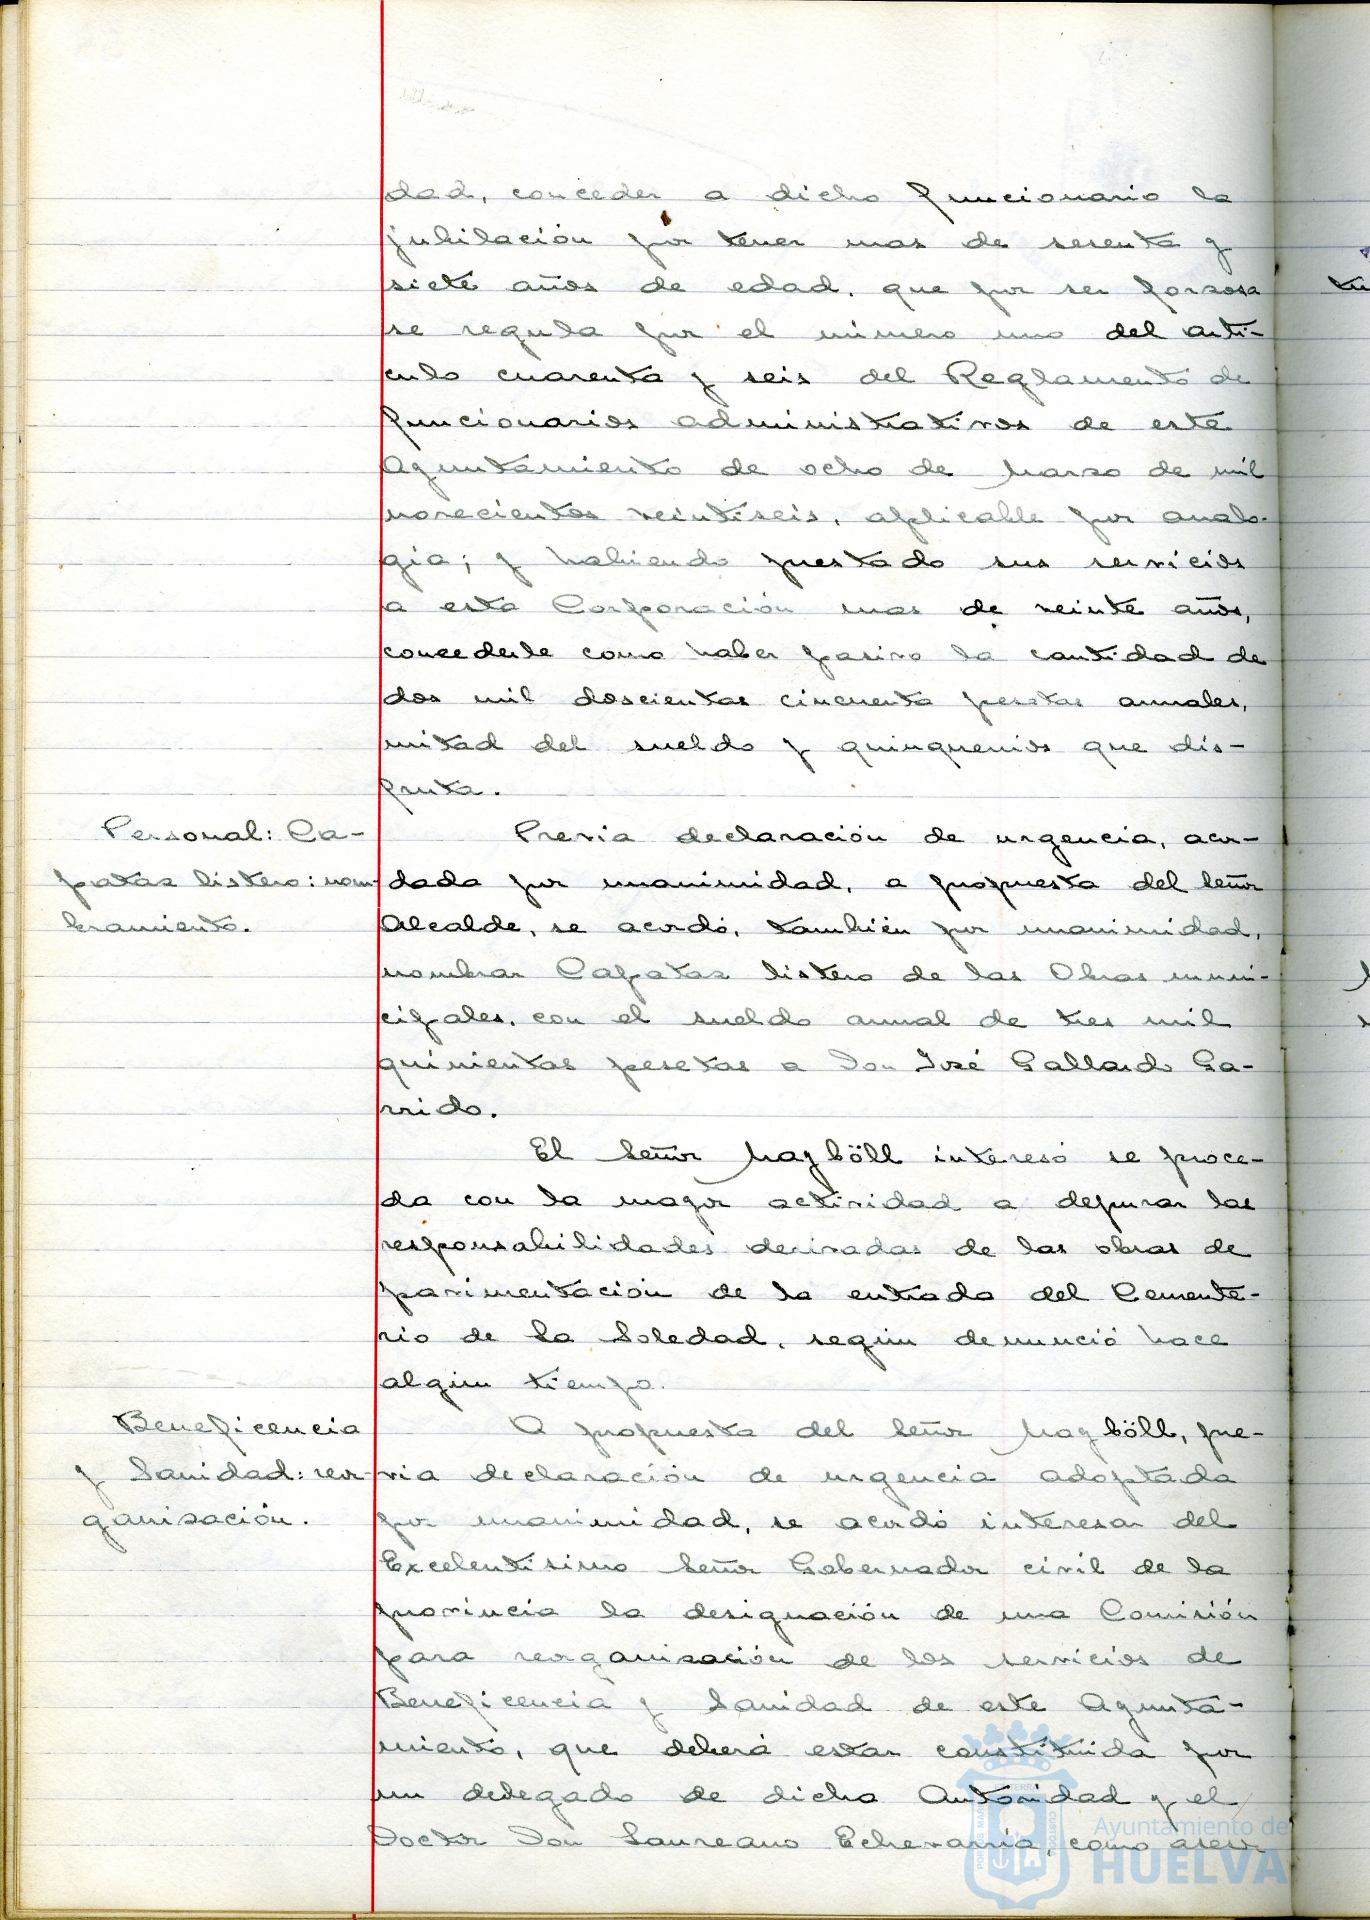 dad, conceder a dicho funcionario la
jubilación por tener mas de sesenta y
siete años de edad, que por ser forzosa
se regula por el número uno del artí-
culo cuarenta y seis del Reglamento de
funcionarios administrativos de este
Ayuntamiento de ocho de Marzo de mil
novecientos veintiseis, aplicable por analo-
gía; y habiendo prestado sus servicios
a esta Corporación mas de veinte años,
concederle como haber pasivo la cantidad de
dos mil doscientas cincuenta pesetas anuales,
mitad del sueldo y quinquenios que dis-
fruta.
Personal: Ca-
pataz listero: nom-
bramiento.
Previa declaración de urgencia, acor-
dada por unanimidad, a propuesta del Señor
Alcalde, se acordó, también por unanimidad,
nombrar Capataz listero de las Obras muni-
cipales, con el sueldo anual de tres mil
quinientas pesetas a Don José Gallardo Ga-
rrido.
El Señor Mayböll interesó se proce-
da con la mayor actividad a depurar las
responsabilidades derivadas de las obras de
pavimentación de la entrada del Cemente-
rio de La Soledad, según denunció hace
algún tiempo.
Beneficencia
y Sanidad: reor-
ganización.
A propuesta del Señor Mayböll, pre-
via declaración de urgencia adoptada
por unanimidad, se acordó interesar del
Excelentísimo Señor Gobernador civil de la
provincia la designación de una Comisión
para reorganización de los servicios de
Beneficencia y Sanidad de este Ayunta-
miento, que deberá estar constituida por
un delegado de dicha Autoridad y el
Doctor Don Laureano Echevarría, como asesor
Ayuntamiento de
HUELVA